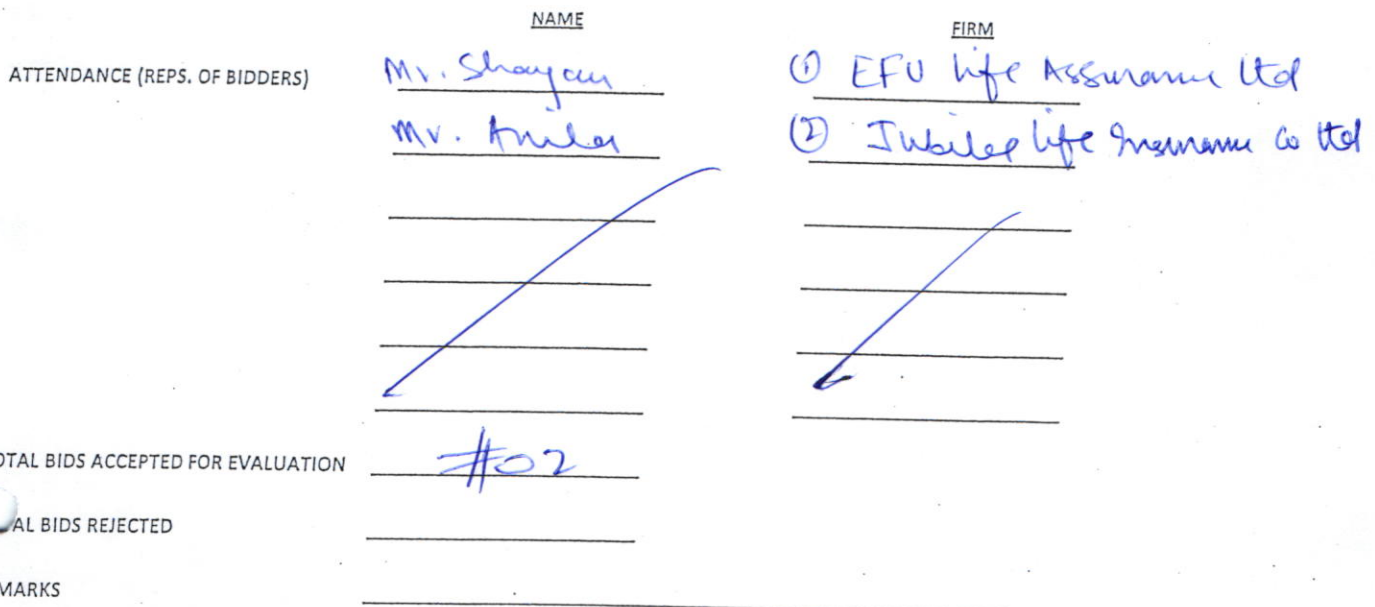 NAME FIRM
ATTENDANCE (REPS. OF BIDDERS) Mr. Shayan ① EFU Life Assurance Ltd
Mr. ② Jubilee Life Insurance Co Ltd
OTAL BIDS ACCEPTED FOR EVALUATION #02
AL BIDS REJECTED
MARKS